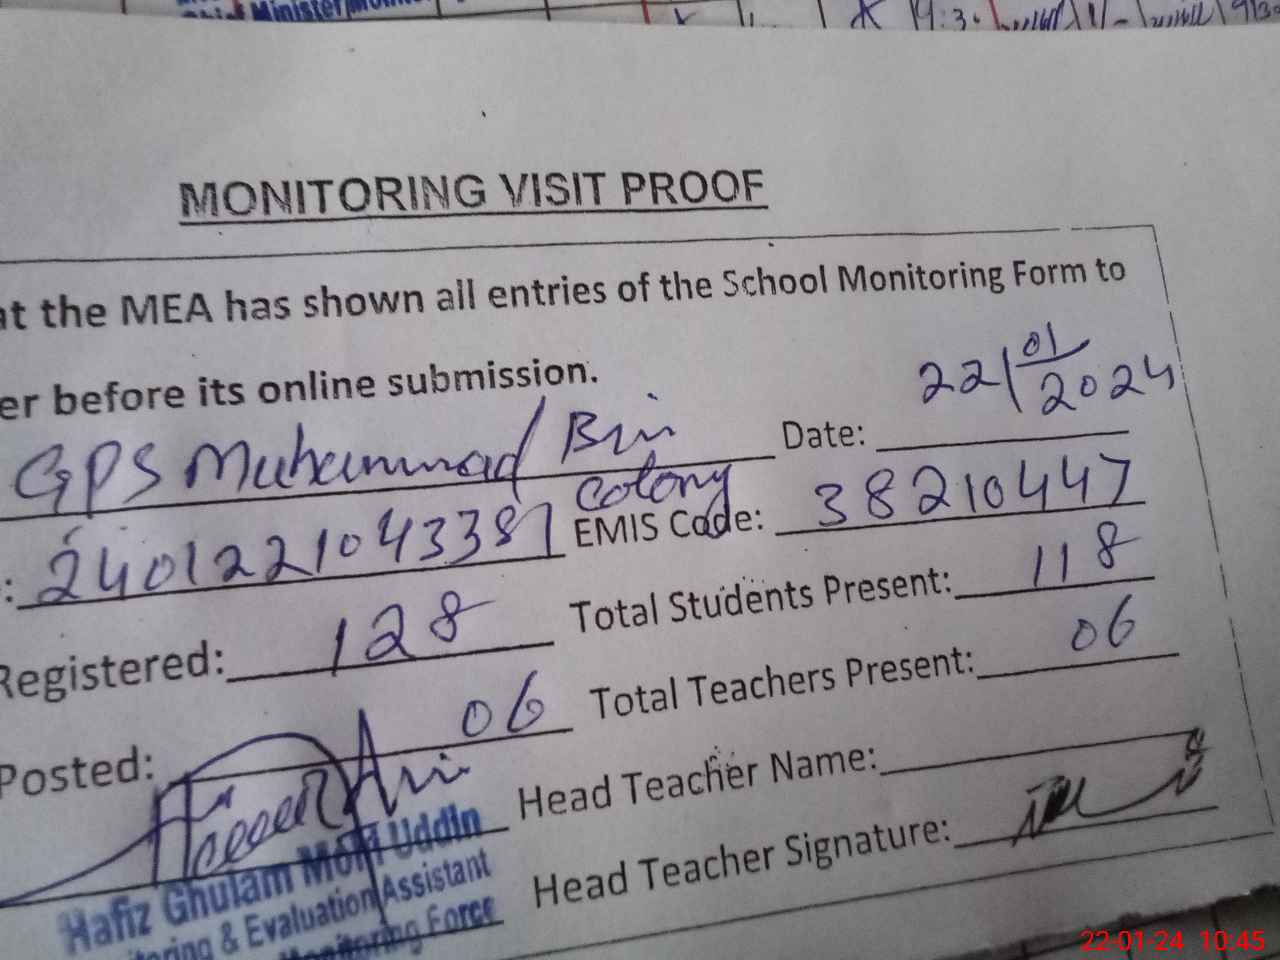 Chief Minister Monit
MONITORING VISIT PROOF
at the MEA has shown all entries of the School Monitoring Form to
er before its online submission.
GPS Muhammad Bin Colony Date: 22/01/2024
: 2401221043387 EMIS Code: 38210447
Registered: 128 Total Students Present: 118
Posted: 06 Total Teachers Present: 06
Head Teacher Name:
Hafiz Ghulam Mohi Uddin Head Teacher Signature:
toring & Evaluation Assistant
Monitoring Force
22-01-24 10:45